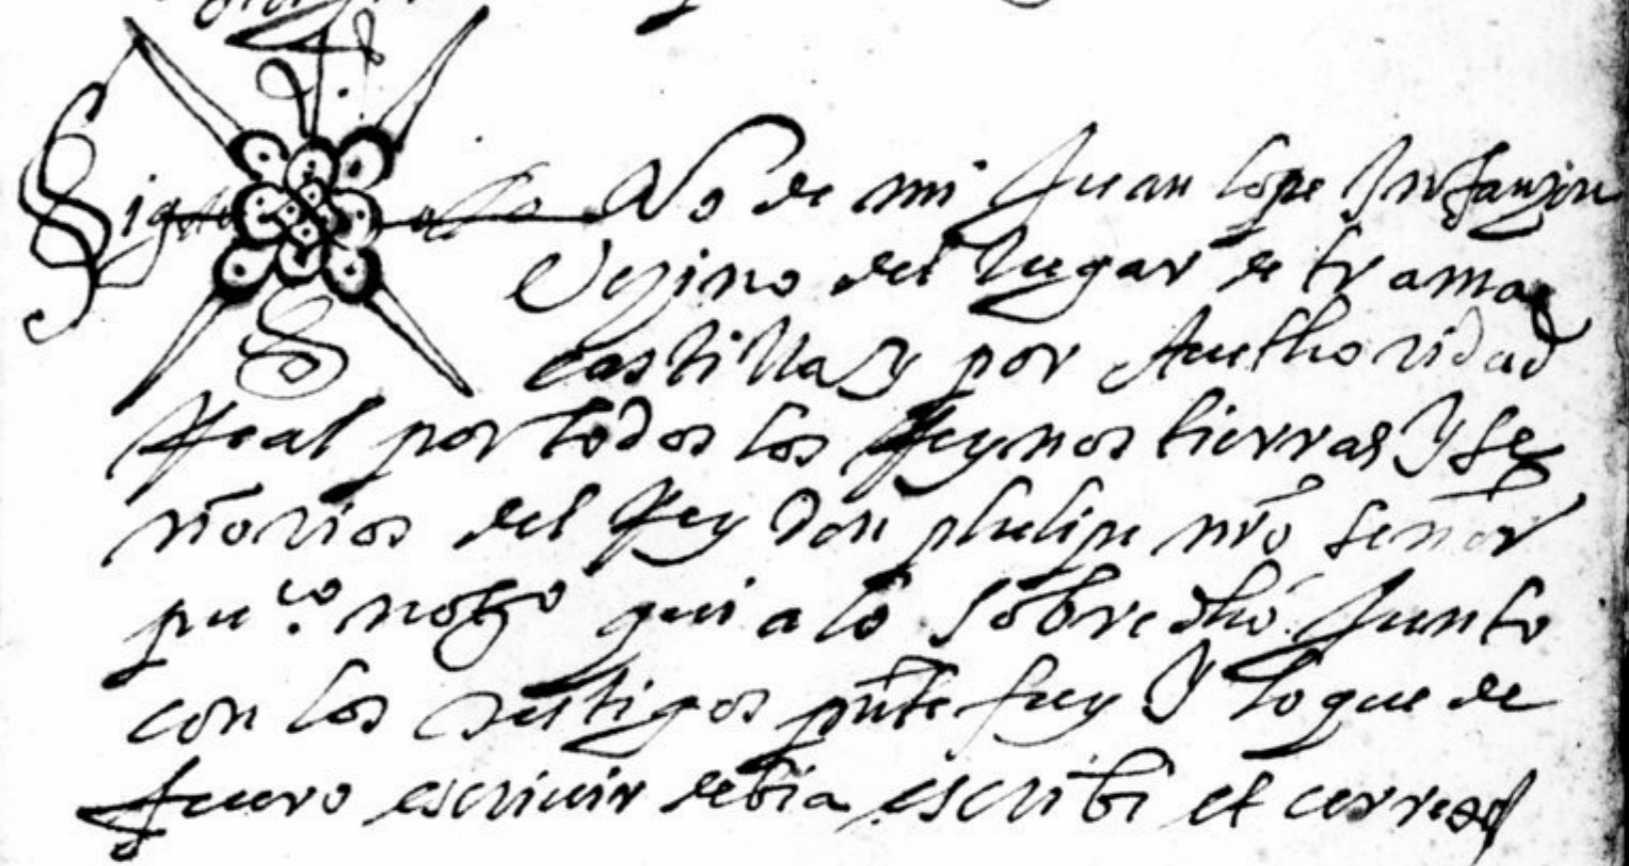 Sig no de mi Juan lope Infanzon
Vezino del lugar de tramac
castilla y por Authoridad
Real por todos los Reynos tierras y se
ñorios del Rey don phelipe nr̃o señor
pu.co not.o qui a lo sobredho Junto
con los testigos pñte fuy y lo que de
fuero escriuir debia escribi et cerre